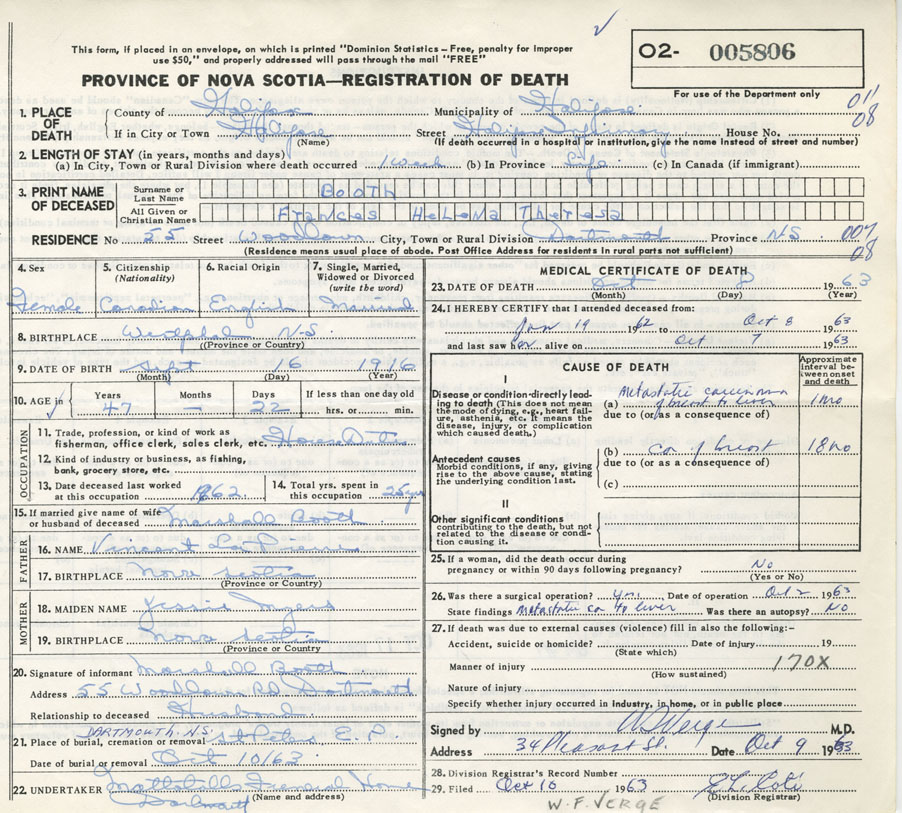 This form, if placed in an envelope, on which is printed "Dominion Statistics – Free, penalty for improper
use $50," and properly addressed will pass through the mail "FREE"
O2- 005806
PROVINCE OF NOVA SCOTIA—REGISTRATION OF DEATH
For use of the Department only
011
08
1. PLACE OF DEATH County of Halifax Municipality of Halifax
If in City or Town Halifax Street Halifax Infirmary House No.
(Name) (If death occurred in a hospital or institution, give the name instead of street and number)
2. LENGTH OF STAY (in years, months and days)
(a) In City, Town or Rural Division where death occurred 1 week (b) In Province Life (c) In Canada (if immigrant)
3. PRINT NAME OF DECEASED Surname or Last Name BOOTH
All Given or Christian Names Frances Helena Theresa
RESIDENCE No 55 Street Woodlawn City, Town or Rural Division Dartmouth Province N S
007
08
(Residence means usual place of abode. Post Office Address for residents in rural parts not sufficient)
4. Sex Female
5. Citizenship (Nationality) Canadian
6. Racial Origin English
7. Single, Married, Widowed or Divorced (write the word) Married
8. BIRTHPLACE Westphal N-S
((Province or Country)
9. DATE OF BIRTH Sept 16 1916
(Month) (Day) (Year)
10. AGE in Years 47 Months — Days 22 If less than one day old
hrs. or min.
OCCUPATION
11. Trade, profession, or kind of work as
fisherman, office clerk, sales clerk, etc.
12. Kind of industry or business, as fishing,
bank, grocery store, etc.
13. Date deceased last worked
at this occupation 1962
14. Total yrs. spent in
this occupation 25 yrs
15. If married give name of wife
or husband of deceased Marshall Booth
FATHER
16. NAME Vincent La Pierre
17. BIRTHPLACE Nova Scotia
(Province or Country)
MOTHER
18. MAIDEN NAME Jessie Myers
19. BIRTHPLACE Nova Scotia
(Province or Country
20. Signature of informant Marshall Booth
Address 55 Woodlawn Rd Dartmouth
Relationship to deceased Husband
DARTMOUTH. N.S.
21. Place of burial, cremation or removal St Peters
Date of burial or removal Oct 10/63
22. UNDERTAKER Mattatalls Funeral Home
(Name and address)
Dartmouth
MEDICAL CERTIFICATE OF DEATH
23. DATE OF DEATH Oct 8 1963
(Month) (Day) (Year)
24. I HEREBY CERTIFY that I attended deceased from:
Jan 19 1962 to Oct 8 1963
and last saw her alive on Oct 7 1963
CAUSE OF DEATH
Approximate interval between onset and death
I
Disease or condition directly leading to death (This does not mean the mode of dying, e.g., heart failure, asthenia, etc. It means the disease, injury, or complication which caused death.)
(a) Metastatic carcinoma of breast to liver 1 mo
due to (or as a consequence of)
Antecedent causes
Morbid conditions, if any, giving rise to the above cause, stating the underlying condition last.
(b) ca of breast 18 mo
due to (or as a consequence of)
(c)
II
Other significant conditions
contributing to the death, but not related to the disease or condition causing it.
25. If a woman, did the death occur during
pregnancy or within 90 days following pregnancy? No
(Yes or No)
26. Was there a surgical operation? yes. Date of operation Oct 2 1963
State findings metastatic ca to liver Was there an autopsy? NO
27. If death was due to external causes (violence) fill in also the following:–
Accident, suicide or homicide? Date of injury 19
(State which)
Manner of injury 170X
(How sustained)
Nature of injury
Specify whether injury occurred in industry, in home, or in public place
Signed by W F Verge M.D.
Address 34 Pleasant St. Date Oct 9 1963
28. Division Registrar's Record Number
29. Filed Oct 10 1963
(Division Registrar)
W. F. VERGE